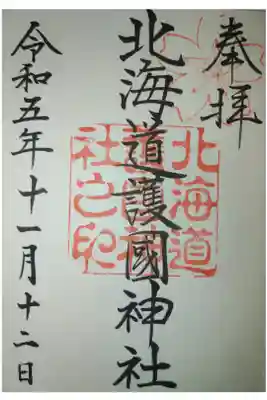 奉拝
北海道護國神社
北海道護國神社之印
令和五年十一月十二日